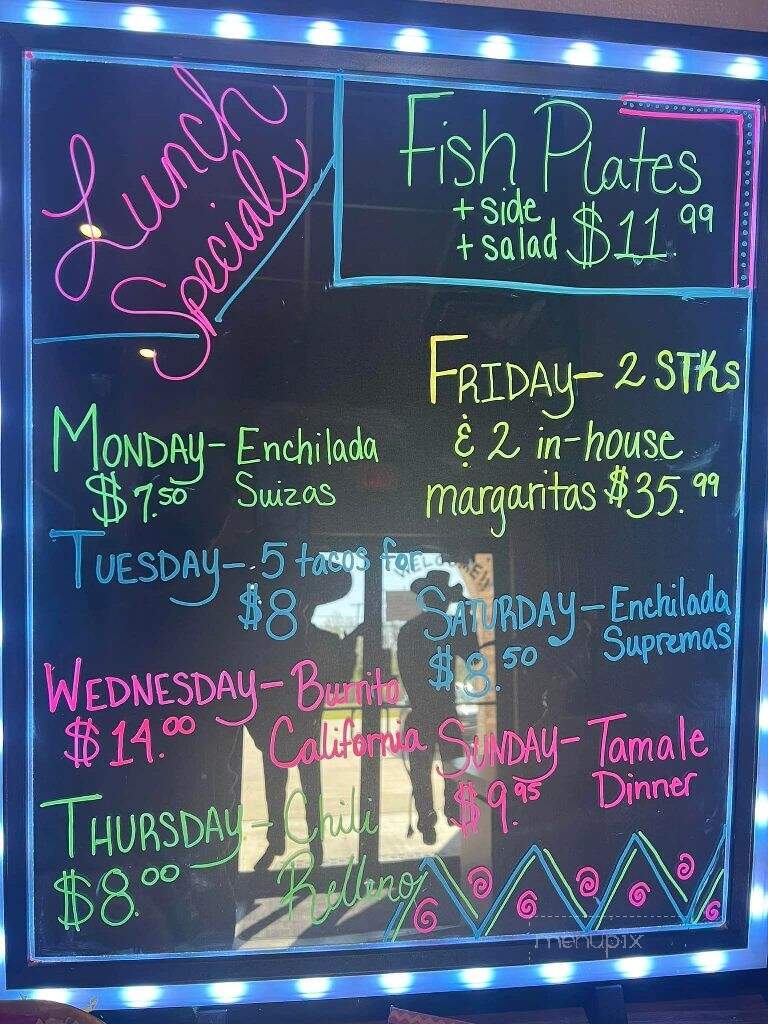 Lunch
Specials
Fish Plates
+ side
+ salad $11.99
MONDAY - Enchilada
$7.50 Suizas
TUESDAY - 5 tacos for
$8
WEDNESDAY - Burrito
$14.00 California
THURSDAY - Chili
$8.00 Relleno
FRIDAY - 2 STKs
& 2 in-house
margaritas $35.99
SATURDAY - Enchilada
$8.50 Supremas
SUNDAY - Tamale
$9.95 Dinner
menupix